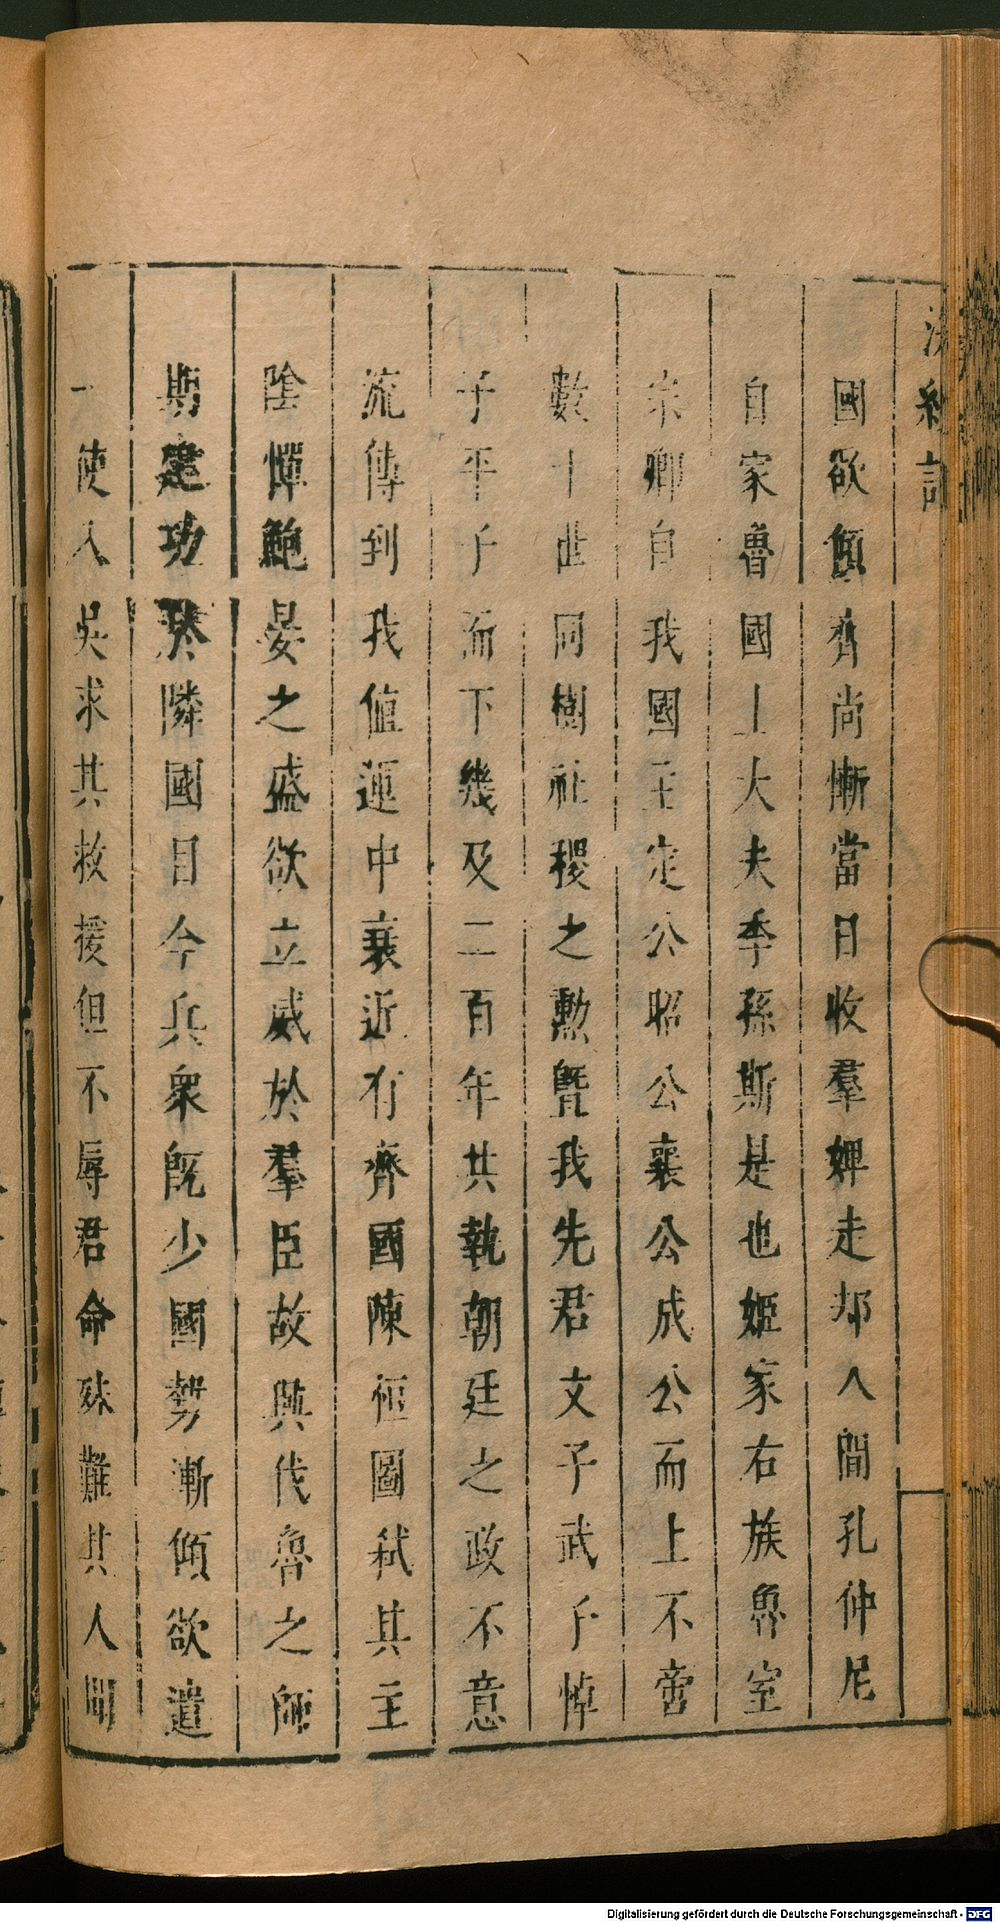 浣紗記
國欲傾齊尚慚當日收羣婢走却人間孔仲尼
自家魯國上大夫季孫斯是也姬家右族魯室
宗卿自我國主定公昭公襄公成公而上不啻
數十世同樹社稷之勲曁我先君文子武子悼
子平子而下幾及二百年共執朝廷之政不意
流傳到我値運中衰近有齊國陳恒圖弑其主
陰憚鮑晏之盛欲立威於羣臣故興伐魯之師
期建功於隣國目今兵衆旣少國勢漸傾欲遣
一使入吳求其救援但不辱君命殊難其人聞
Digitalisierung gefördert durch die Deutsche Forschungsgemeinschaft - DFG